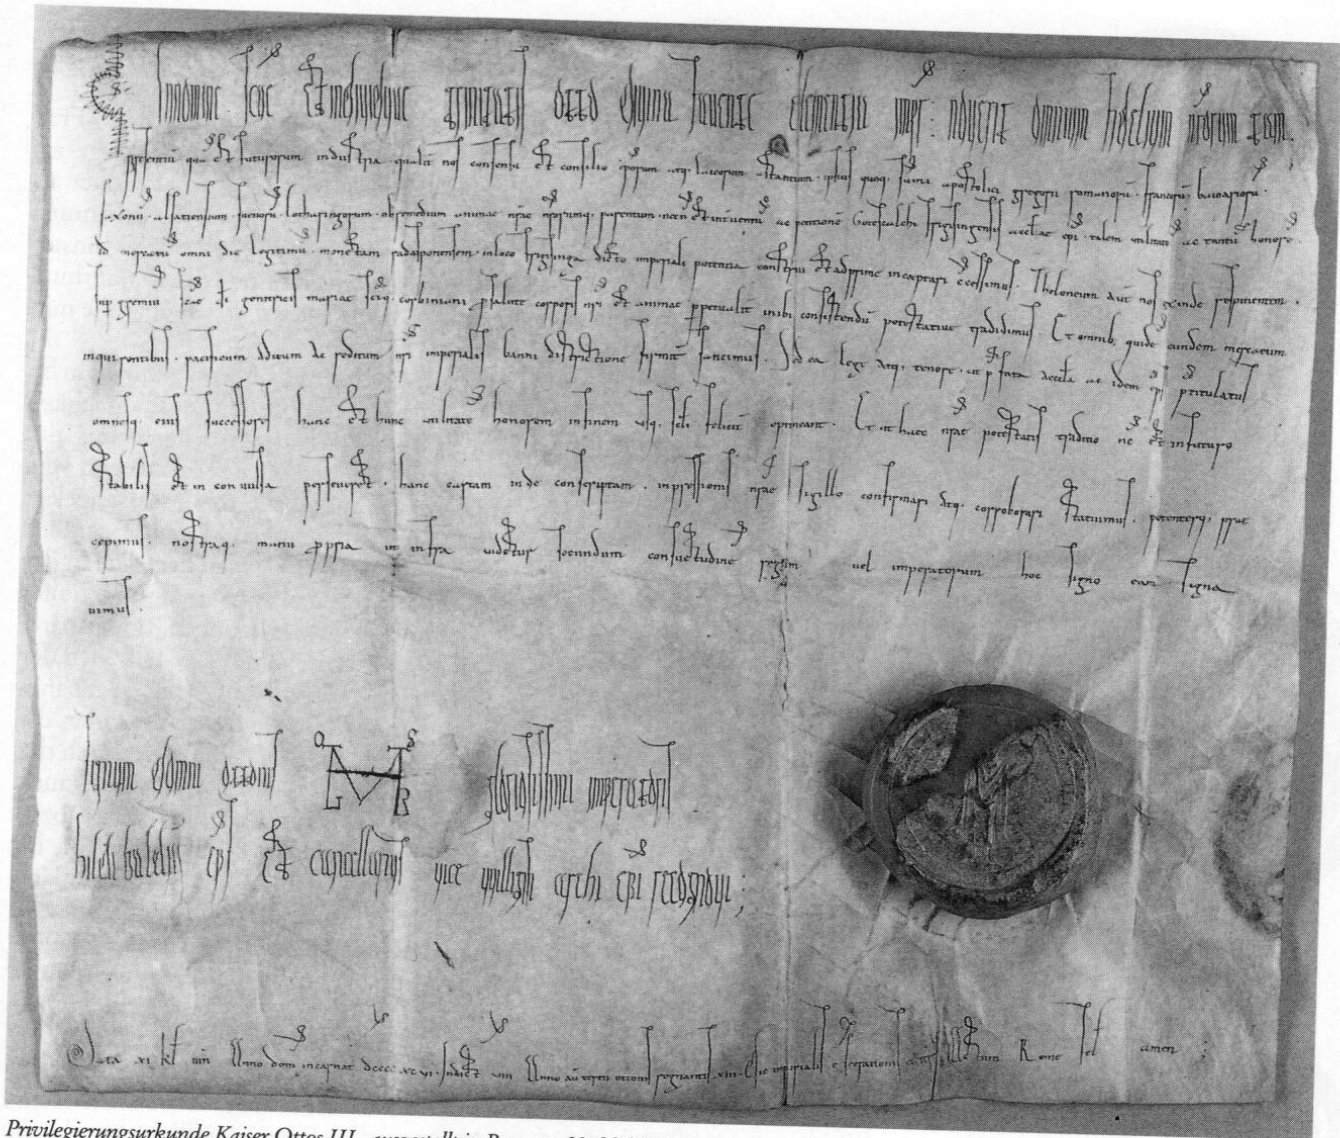 In nomine sce et individue trinitatis otto divina favente clementia impr noverit omnium fidelium nrorum tam
presentiu qua et futurorum industria qualit nos consensu et consilio atq laicorum astantium ipsius quoq sumi apostolici gregorii romanoru francoru baioarioru
saxonu alsatiensium lotharingorum ob remedium animae nrae nrorumq parentum nec et interventu ac petitione Gotescalchi frigisingensis aeclae epi talem utilitate ac tantu honore
id mercatu omni die legitimu monetam radasponensem in loco frigisinga dicto imperiali potentia construi et adprime inceptari Theloneum aut nos exinde respiciente
in gremiu scae di genitricis mariae sciq corbiniani psalute corporis nri et animae ppetualit inibi consistendu potestative tradidimus Et omnib quide eundem mercatum
inquirentibus pacificum aditum ac reditum nri imperialis banni districtione firmit sancimus Sed ea lege atq tenore ut pfata aeccla ac idem eps ptitulatus
omnesq eius successores hanc et hunc utilitate honorem in finem usq scli felicit optineant Et ut haec nrae potestatis traditio nc et in futuro
stabilis et inconvulsa perseveret hanc cartam inde conscriptam inpressionis nrae sigillo confirmari atq corroborari statuimus potenterq
cepimus nostraq manu ppria ut infra videtur secundum consuetudine regum vel imperatorum hoc signo eam signa
vimus
Signum domni ottonis gloriosissimi imperatoris
hildibaldus eps et cancellarius vice willigisi archi epi recognovi;
Data xi kl iun Anno dom incarnat dcccc xc vi Indict viiii Anno aut tercii ottonis regnantis xiii Rome fel amen;
Privilegierungsurkunde Kaiser Ottos III.